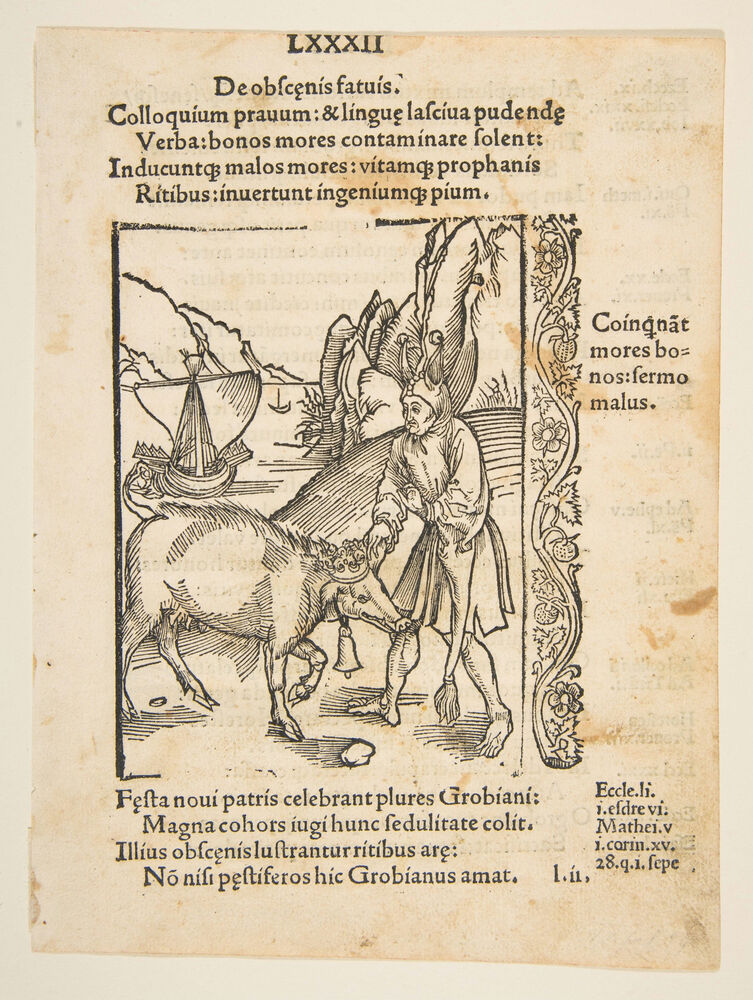 LXXXII
De obſcęnis fatuis.
Colloquium prauum: & linguę laſciua pudendę
Verba: bonos mores contaminare ſolent:
Inducuntꝗ malos mores: vitamꝗ prophanis
Ritibus: inuertunt ingeniumꝗ pium.
Coinꝗ̃nãt
mores bo=
nos: ſermo
malus.
Fęſta noui patris celebrant plures Grobiani:
Magna cohors iugi hunc ſedulitate colit.
Illius obſcęnis luſtrantur ritibus arę:
Nõ niſi pęſtiferos hic Grobianus amat.
l.ii,
Eccle.li.
i.eſdre vi.
Mathei.v
i.corin.xv.
28.q.i.ſepe